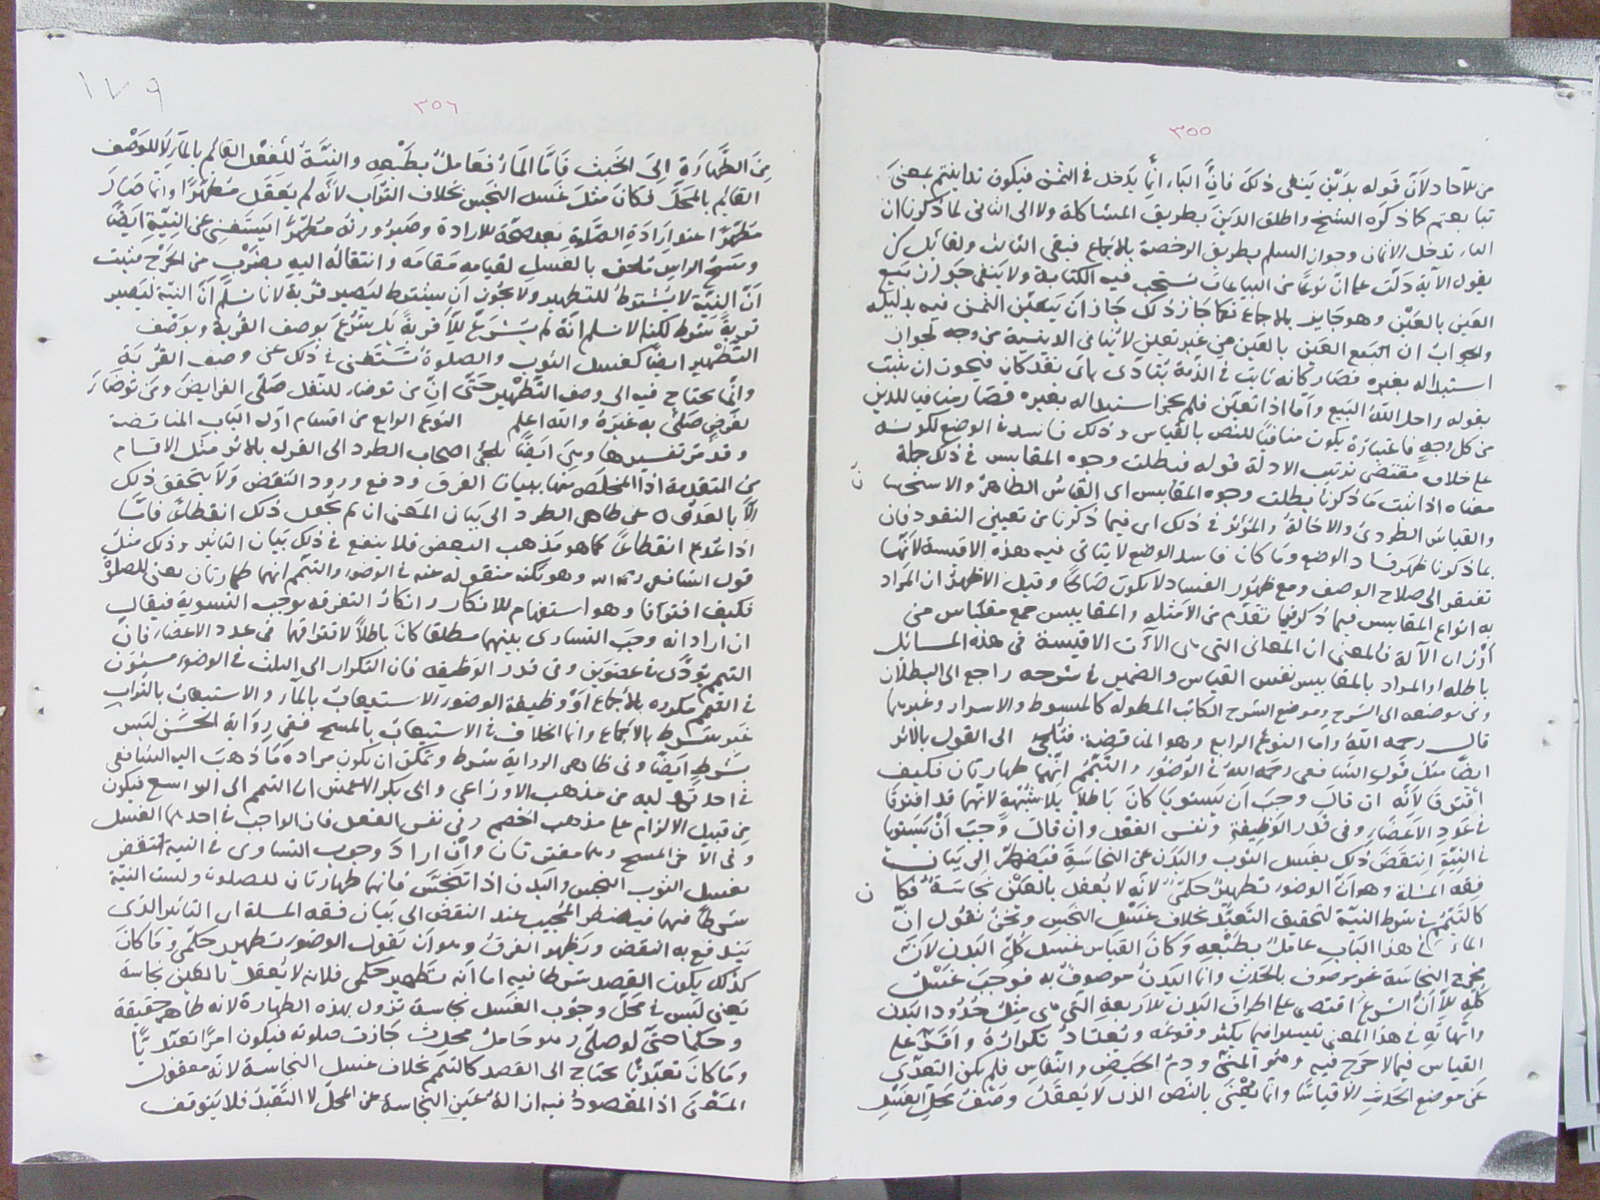 ٣٥٥
من الآحاد لان قوله بدين ينفى ذلك فان الباء انما يدخل فى الثمن فيكون تداينتم بمعنى
تبايعتم كما ذكره الشيخ واطلق الدين بطريق المشاكلة ولا الى الثانى لما ذكرنا ان
الباء تدخل الاثمان وجواز السلم بطريق الرخصة بالاجماع فبقى الثالث ولقائل ان
يقول الآية دلت على ان نوعا من البياعات يستحب فيه الكتابة ولا ينفى جواز بيع
العين بالعين وهو جايز بالاجماع فكما جاز ذلك جاز ان يتعين الثمن فيه بدليله
والجواب ان البيع العين بالعين من غير تعين لا ينافى الدينية من وجه لجواز
استبداله بغيره فصار كانه ثابت فى الذمة يتادى باى نقد كان فيجوز ان يثبت
بقوله واحل الله البيع واما اذا تعين فلم يجز استبداله بغيره فصار منافيا للدين
من كل وجه فاعتباره يكون منافيا للنص بالقياس وذلك فاسد فى الوضع لكونه
على خلاف مقتضى ترتيب الادلة قوله فبطلت وجوه المقاييس فى ذلك جملة
معناه اذا ثبت ما ذكرنا بطلت وجوه المقاييس اى القياس الظاهر والاستحسان
والقياس الطردى والاخالة والمؤثر فى ذلك اى فيما ذكرنا من تعيين النقود فان
بما ذكرنا ظهر فساد الوضع وما كان فاسد الوضع لا يتاتى فيه هذه الاقيسة لانها
تفتقر الى صلاح الوصف ومع ظهور الفساد لا يكون صالحا وقيل الاظهر ان المراد
به انواع المقاييس فيما ذكر فيما تقدم من الامثلة والمقاييس جمع مقياس من
اوزان الآلة فالمعنى ان المعانى التى هى الآت الاقيسة فى هذه المسائل
باطله او المراد بالمقاييس نفس القياس والضمير فى شرحه راجع الى البطلان
وفى موضعه الى الشرح وموضع الشرح الكاتب المطوله كالمبسوط والاسرار وغيرهما
قال رحمه الله واما النوع الرابع وهو المناقضة فتلجئ الى القول بالاثر
ايضا مثل قول الشافعى رحمه الله فى الوضوء والتيمم انهما طهارتان فكيف
افترقا لانه ان قال وجب ان يستويا كان باطلا بلا شبهة لانهما قد افترقا
فى عدد الاعضاء وفى قدر الوظيفة ونفس الفعل وان قال وجب ان يستويا
فى النية انتقض ذلك بغسل الثوب والبدن عن النجاسة فيضطر الى بيان
فقه المسئلة وهو ان الوضوء تطهير حكمى لانه لا يعقل بالعين نجاسة فكان
كالتيمم فى شرط النية لتحقيق التعبد بخلاف غسل النجس ونحن نقول ان
الماء فى هذا الباب عامل بطبعه وكان القياس غسل كل البدن لان
مخرج النجاسة غير موصوف بالحدث وانما البدن موصوف به فوجب غسل
كله الا ان الشرع اقتصر على اطراف البدن الاربعة التى هى مثل حدود البدن
وامهاته فى هذا المعنى تيسيرا فيما يكثر وقوعه ويعتاد تكراره واقر على
القياس فيما لا حرج فيه وهو المنى ودم الحيض والنفاس فلم يكن التعدى
عن موضع الحدث الا قياسا وانما يعنى بالنص الذى لا يعقل وصف محل الغسل
١٧٩
٣٥٦
من الطهارة الى الخبث فاما الماء فعامل بطبعه والنية للفعل القائم بالماء لا للوصف
القائم بالمحل فكان مثل غسل النجس بخلاف التراب لانه لم يعقل مطهرا وانما صار
مطهرا عند ارادة الصلاة بعد صحة الارادة وصيرورته مطهرا يستغنى عن النية ايضا
ومسح الراس ملحق بالغسل لقيامه مقامه وانتقاله اليه بضرب من الحرج فثبت
ان النية لا يشترط للتطهير ولا يجوز ان يشترط ليصير قربة لانا نسلم ان النية ليصير
قربة شرط لكنا لا نسلم انه لم يشرع الا قربة بل شرع بوصف القربة وبوصف
التطهير ايضا كغسل الثوب والصلوة تستغنى فى ذلك عن وصف القربة
وانما يحتاج فيه الى وصف التطهير حتى ان من توضا للنفل صلى الفرايض ومن توضا
لفرض صلى به غيره والله اعلم النوع الرابع من اقسام اول الباب المناقضة
وقد مر تفسيرها وهى ايضا تلجئ اصحاب الطرد الى القول بالاثر مثل الاقسام
من المتقدمة اذ المخلص منها ببيان الفرق ودفع ورود النقض ولا يتحقق ذلك
الا بالعدول عن ظاهر الطرد الى بيان المعنى ان لم يجعل ذلك انقطاعا فاما
اذا عد انقطاعا كما هو مذهب البعض فلا ينفع فى ذلك بيان التاثير وذلك مثل
قول الشافعى رحمه الله وهو نكتة منقوله عنه فى الوضوء والتيمم انهما طهارتان يعنى للصلوة
فكيف افترقا وهو استفهام للانكار وانكار التفرقه يوجب التسوية فيقال
ان اراد انه وجب التساوى بينهما مطلقا كان باطلا لافتراقهما فى عدد الاعضاء فان
التيمم يؤدى فى عضوين وفى قدر الوظيفه فان التكرار الى الثلث فى الوضوء مسنون
فى التيمم مكروه بالاجماع او وظيفة الوضوء الاستيعاب بالماء والاستيعاب بالتراب
غير شرط بالاجماع وانما الخلاف فى الاستيعاب بالمسح ففى رواية الحسن ليس
بشرط ايضا وفى ظاهر الرواية شرط ويمكن ان يكون مراده ما ذهب اليه الشافعى
فى احد قوليه من مذهب الاوزاعى وابى بكر الاعمش ان التيمم الى الرواسغ فيكون
من قبيل الالزام على مذهب الخصم وفى نفس الفعل فان الواجب فى احدهما الغسل
وفى الآخر المسح وهما مفترقان وان اراد وجوب التساوى فى النية انتقض
بغسل الثوب النجس والبدن اذا تنجس فانهما طهارتان للصلوة وليست النية
شرطا فيهما فيضطر المجيب عند النقض الى بيان فقه المسئلة اى التاثير الذى
يندفع به النقض ويظهر الفرق وهو ان يقول الوضوء تطهير حكمى وما كان
كذلك يكون القصد شرطا فيه اما انه تطهير حكمى فلانه لا يعقل بالعين نجاسة
يعنى ليس فى محل وجوب الغسل نجاسة تزول بهذه الطهارة لانه طاهر حقيقة
وحكما حتى لو صلى وهو حامل محدث جازت صلوته فيكون امرا تعبديا
وما كان تعبديا يحتاج الى القصد كالتيمم بخلاف غسل النجاسة لانه معقول
المعنى اذ المقصود فيه ازالة عين النجاسة عن المحل لا التعبد فلا يتوقف